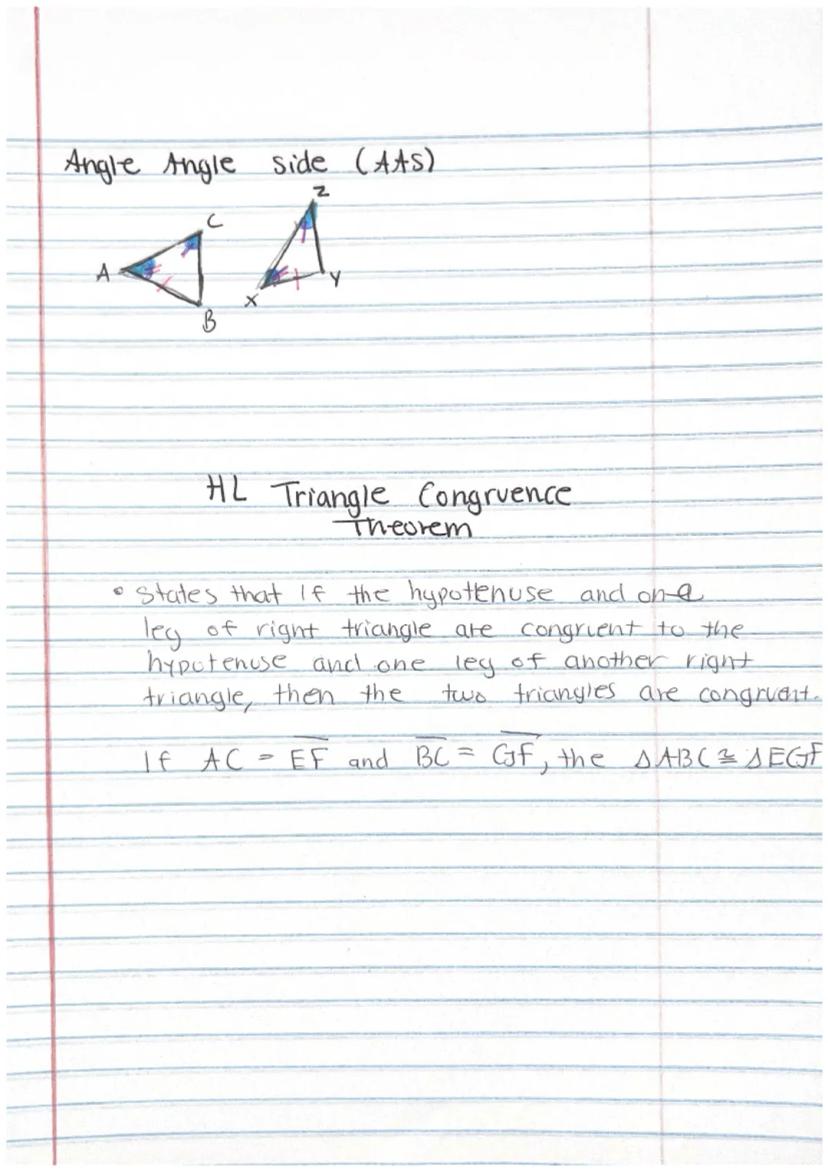 Angle Angle side (AAS)
Z
C
A
Y
X
B
HL Triangle Congruence
Theorem
• States that if the hypotenuse and one
leg of right triangle are congruent to the
hypotenuse and one leg of another right
triangle, then the two triangles are congruent.
If AC = E̅F̅ and B̅C̅ = G̅F̅, the ΔABC ≅ ΔEGF